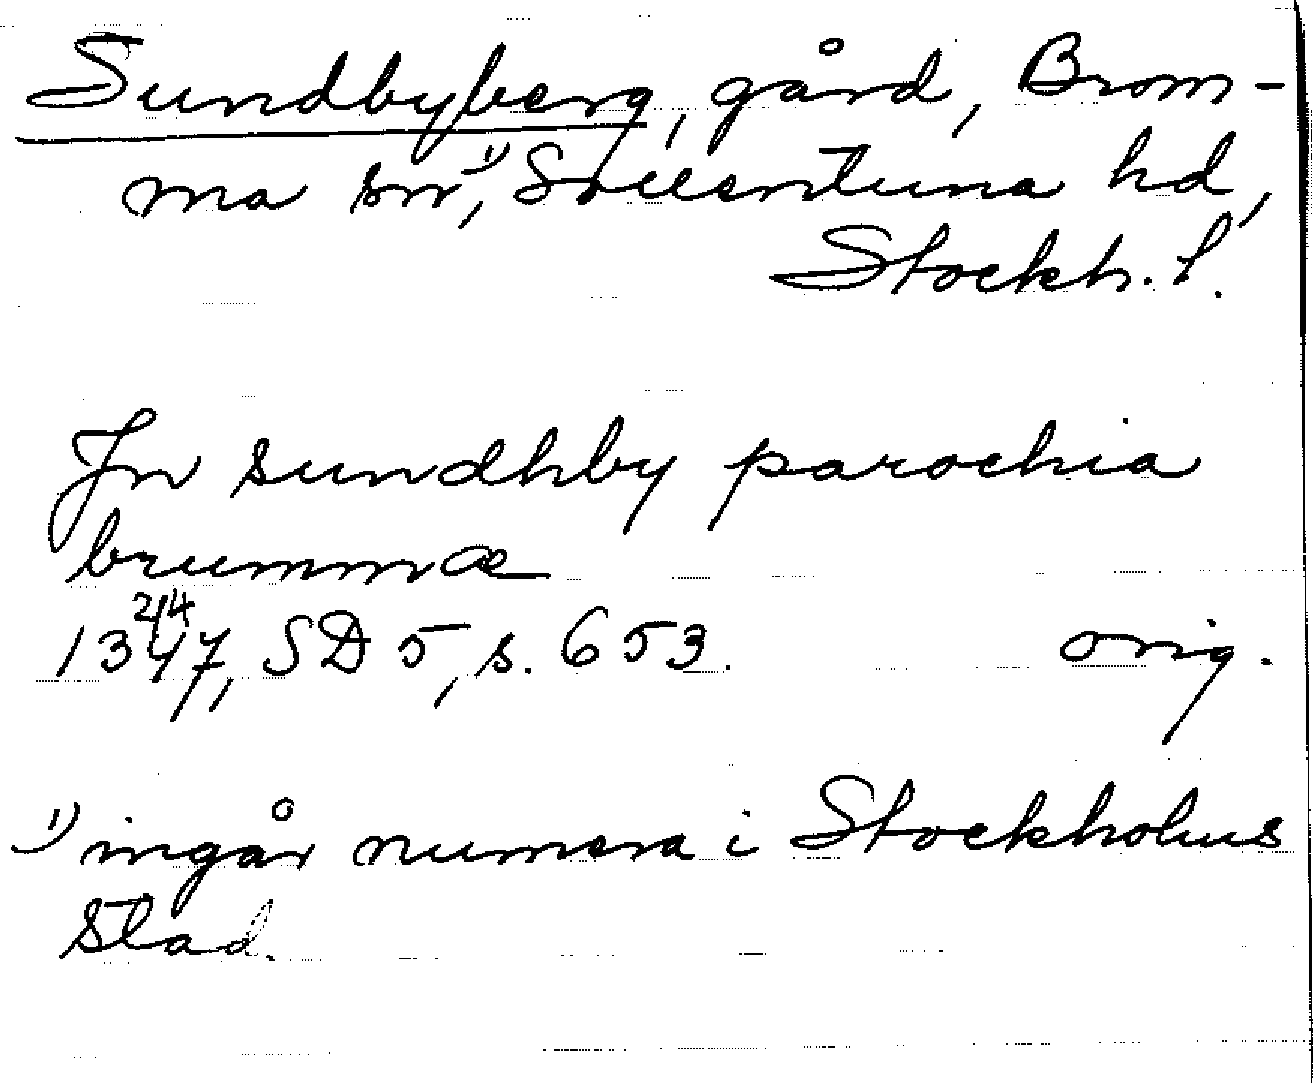 Sundbyberg, gård, Brom-
ma sn,¹⁾ Sollentuna hd,
Stockh. l.
In sundhby parochia
brummæ
13 24/4 47, SD 5, s. 653. orig.
¹⁾ ingår numera i Stockholms
stad.